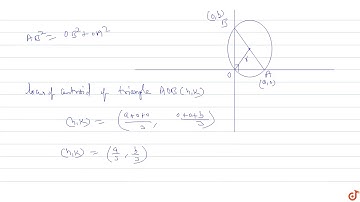 AB² = OB² + OA²
(0,b)
B
r
O
A
(a,0)
locus of centroid of triangle AOB (h,k)
(h,k) = ((a+0+0)/3, (0+0+b)/3)
(h,k) = (a/3, b/3)